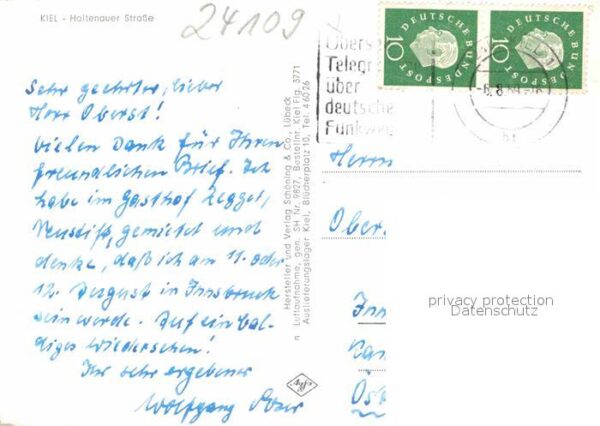 KIEL - Holtenauer Straße
24109
Sehr geehrter, lieber
Herr Oberst!
Vielen Dank für Ihren
freundlichen Brief. Ich
habe im Gasthof
Neustift, gemietet und
denke, daß ich am 11. oder
12. August in Innsbruck
sein werde. Auf ein bal-
diges Wiedersehen!
Ihr sehr ergebener
Wolfgang
Hersteller und Verlag Schöning & Co., Lübeck
Luftaufnahme, gen. SH Nr. 9827, Bestellnr. Kiel Flg. 3771
Auslieferungslager Kiel, Blücherplatz 10, Tel. 46026
Agfa
DEUTSCHE BUNDESPOST
10
DEUTSCHE BUNDESPOST
10
Übers
Telegr
über
deutsche
Funkweg
Herrn
Ober
Inn
Öst
privacy protection
Datenschutz